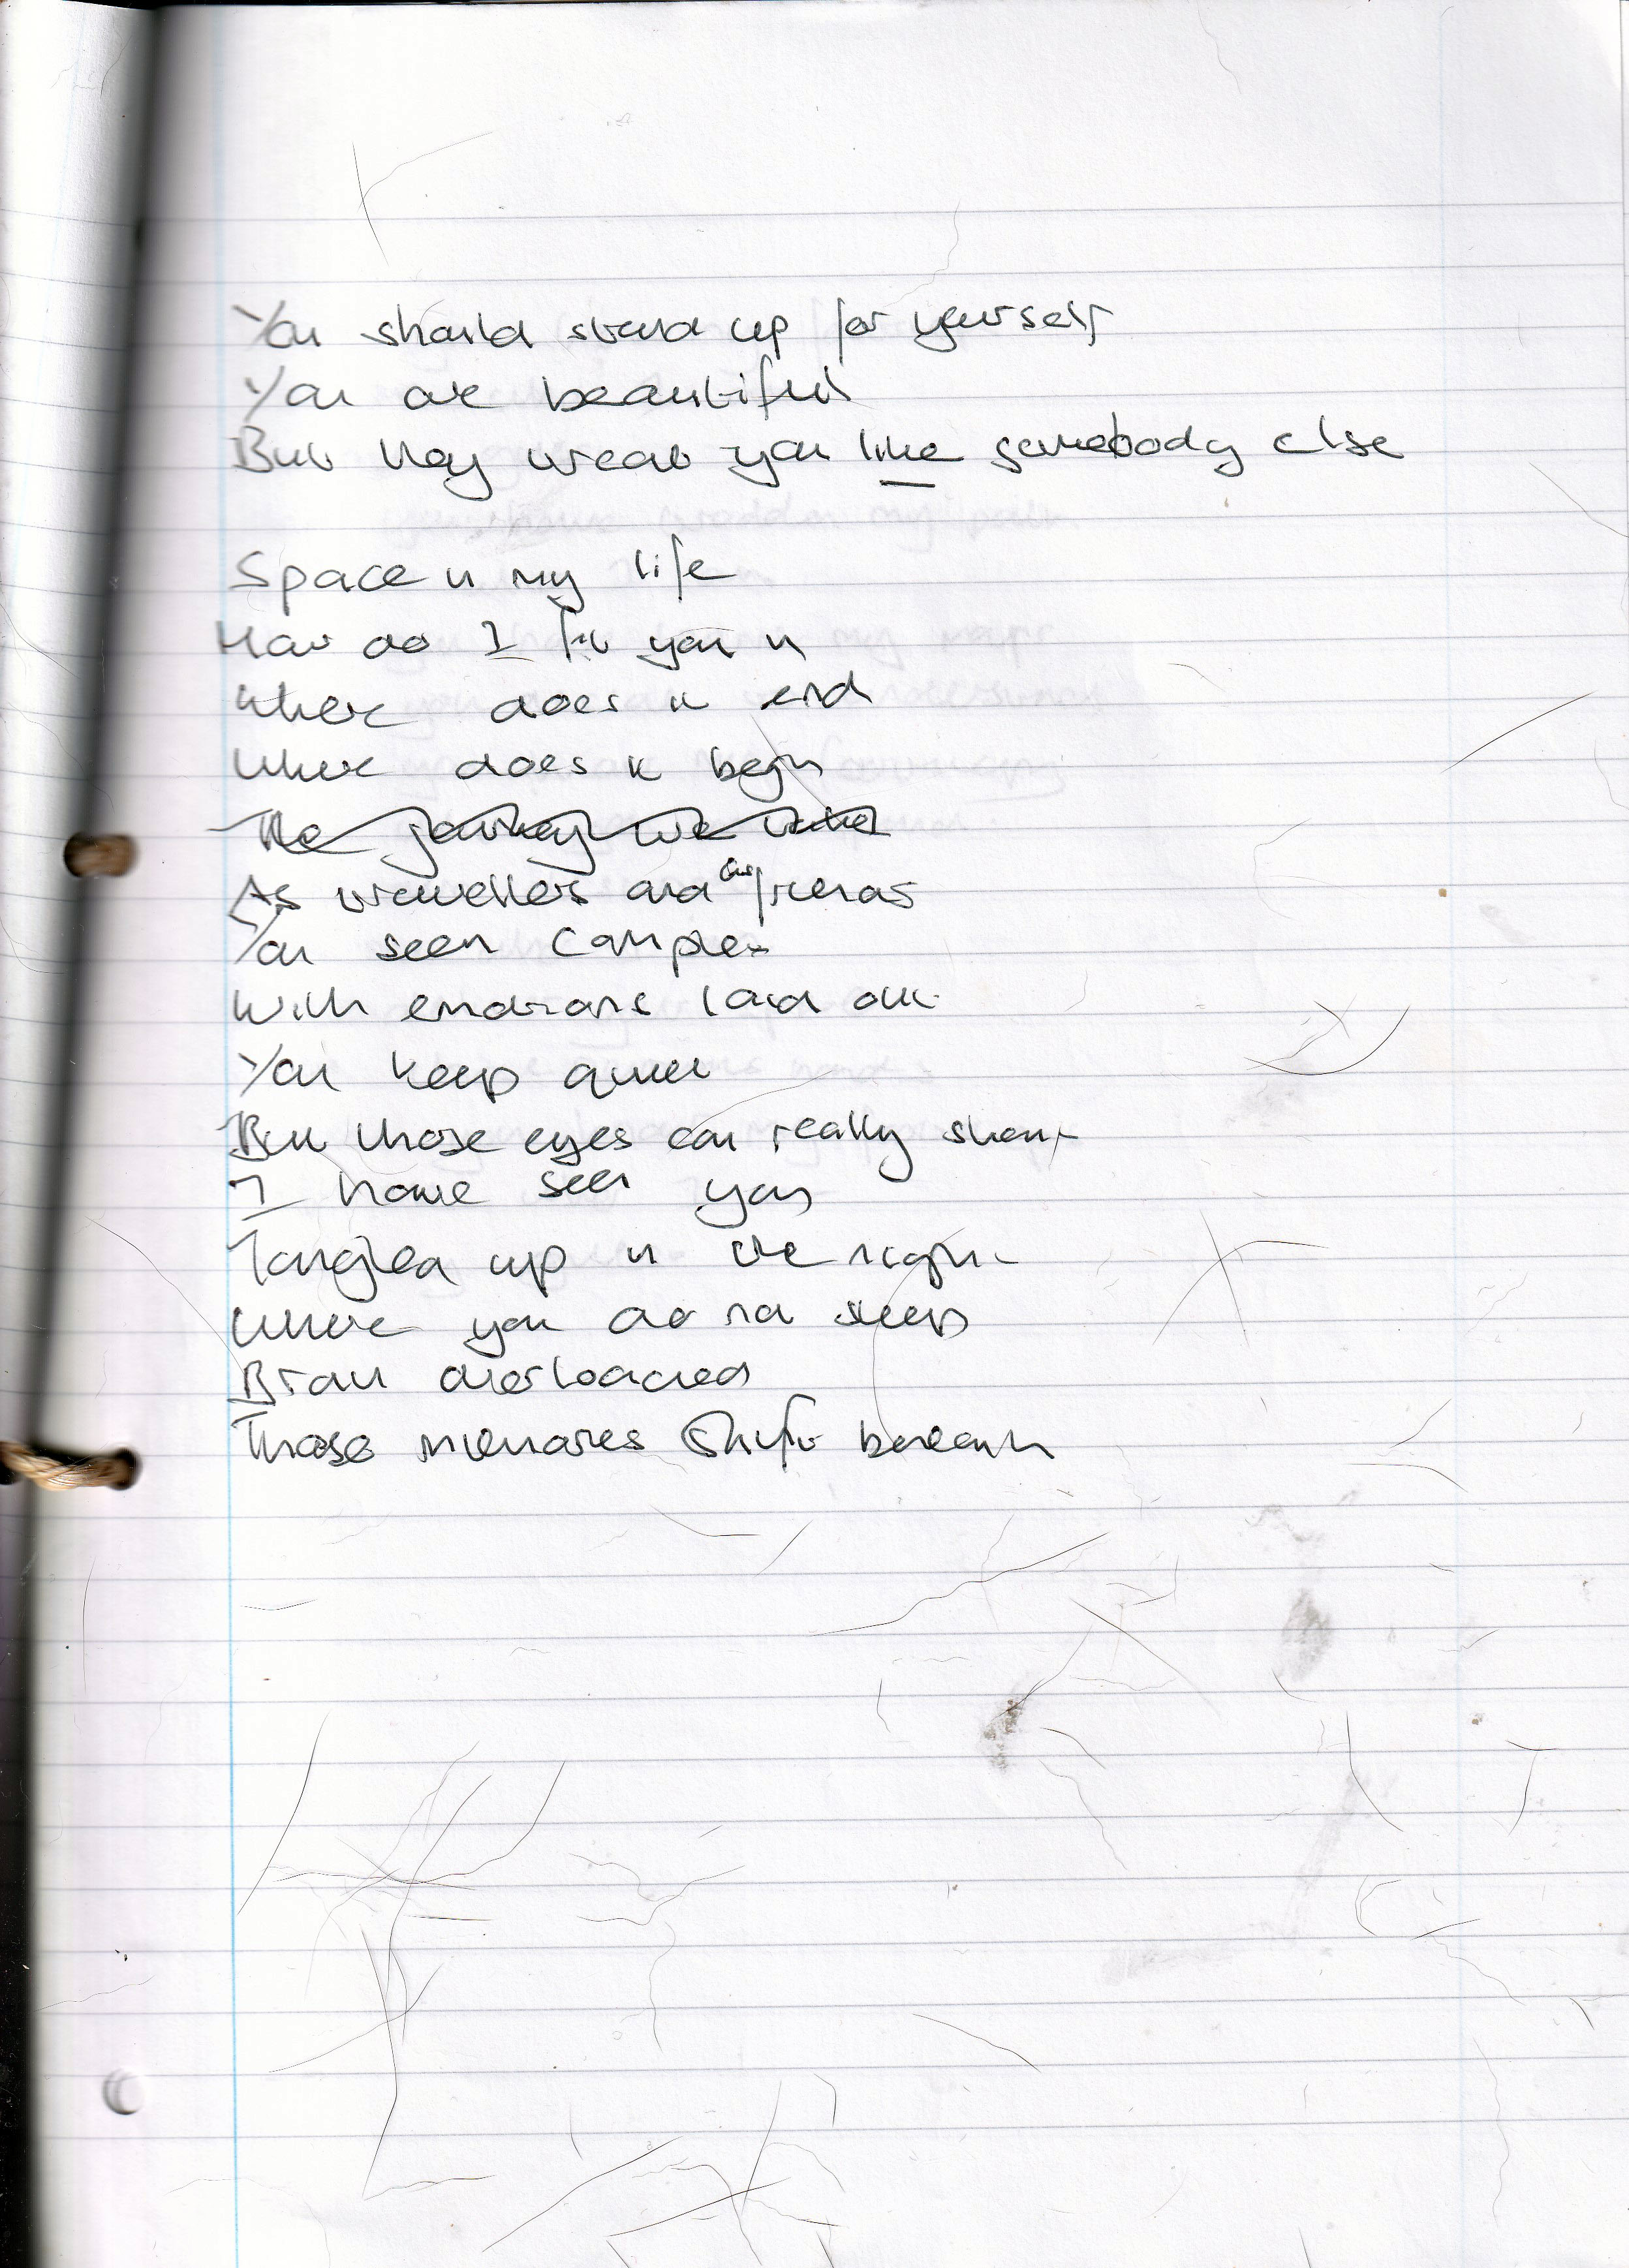 You should stand up for yourself
You are beautiful
But they treat you like somebody else
Space in my life
How do I fit you in
Where does it end
Where does it begin
The journey we take
As travellers and as friends
You seem complex
With emotions laid out
You keep quiet
But those eyes can really shout
I have seen you
Tangled up in the night
Where you do not sleep
Brain overloaded
Those memories shift beneath